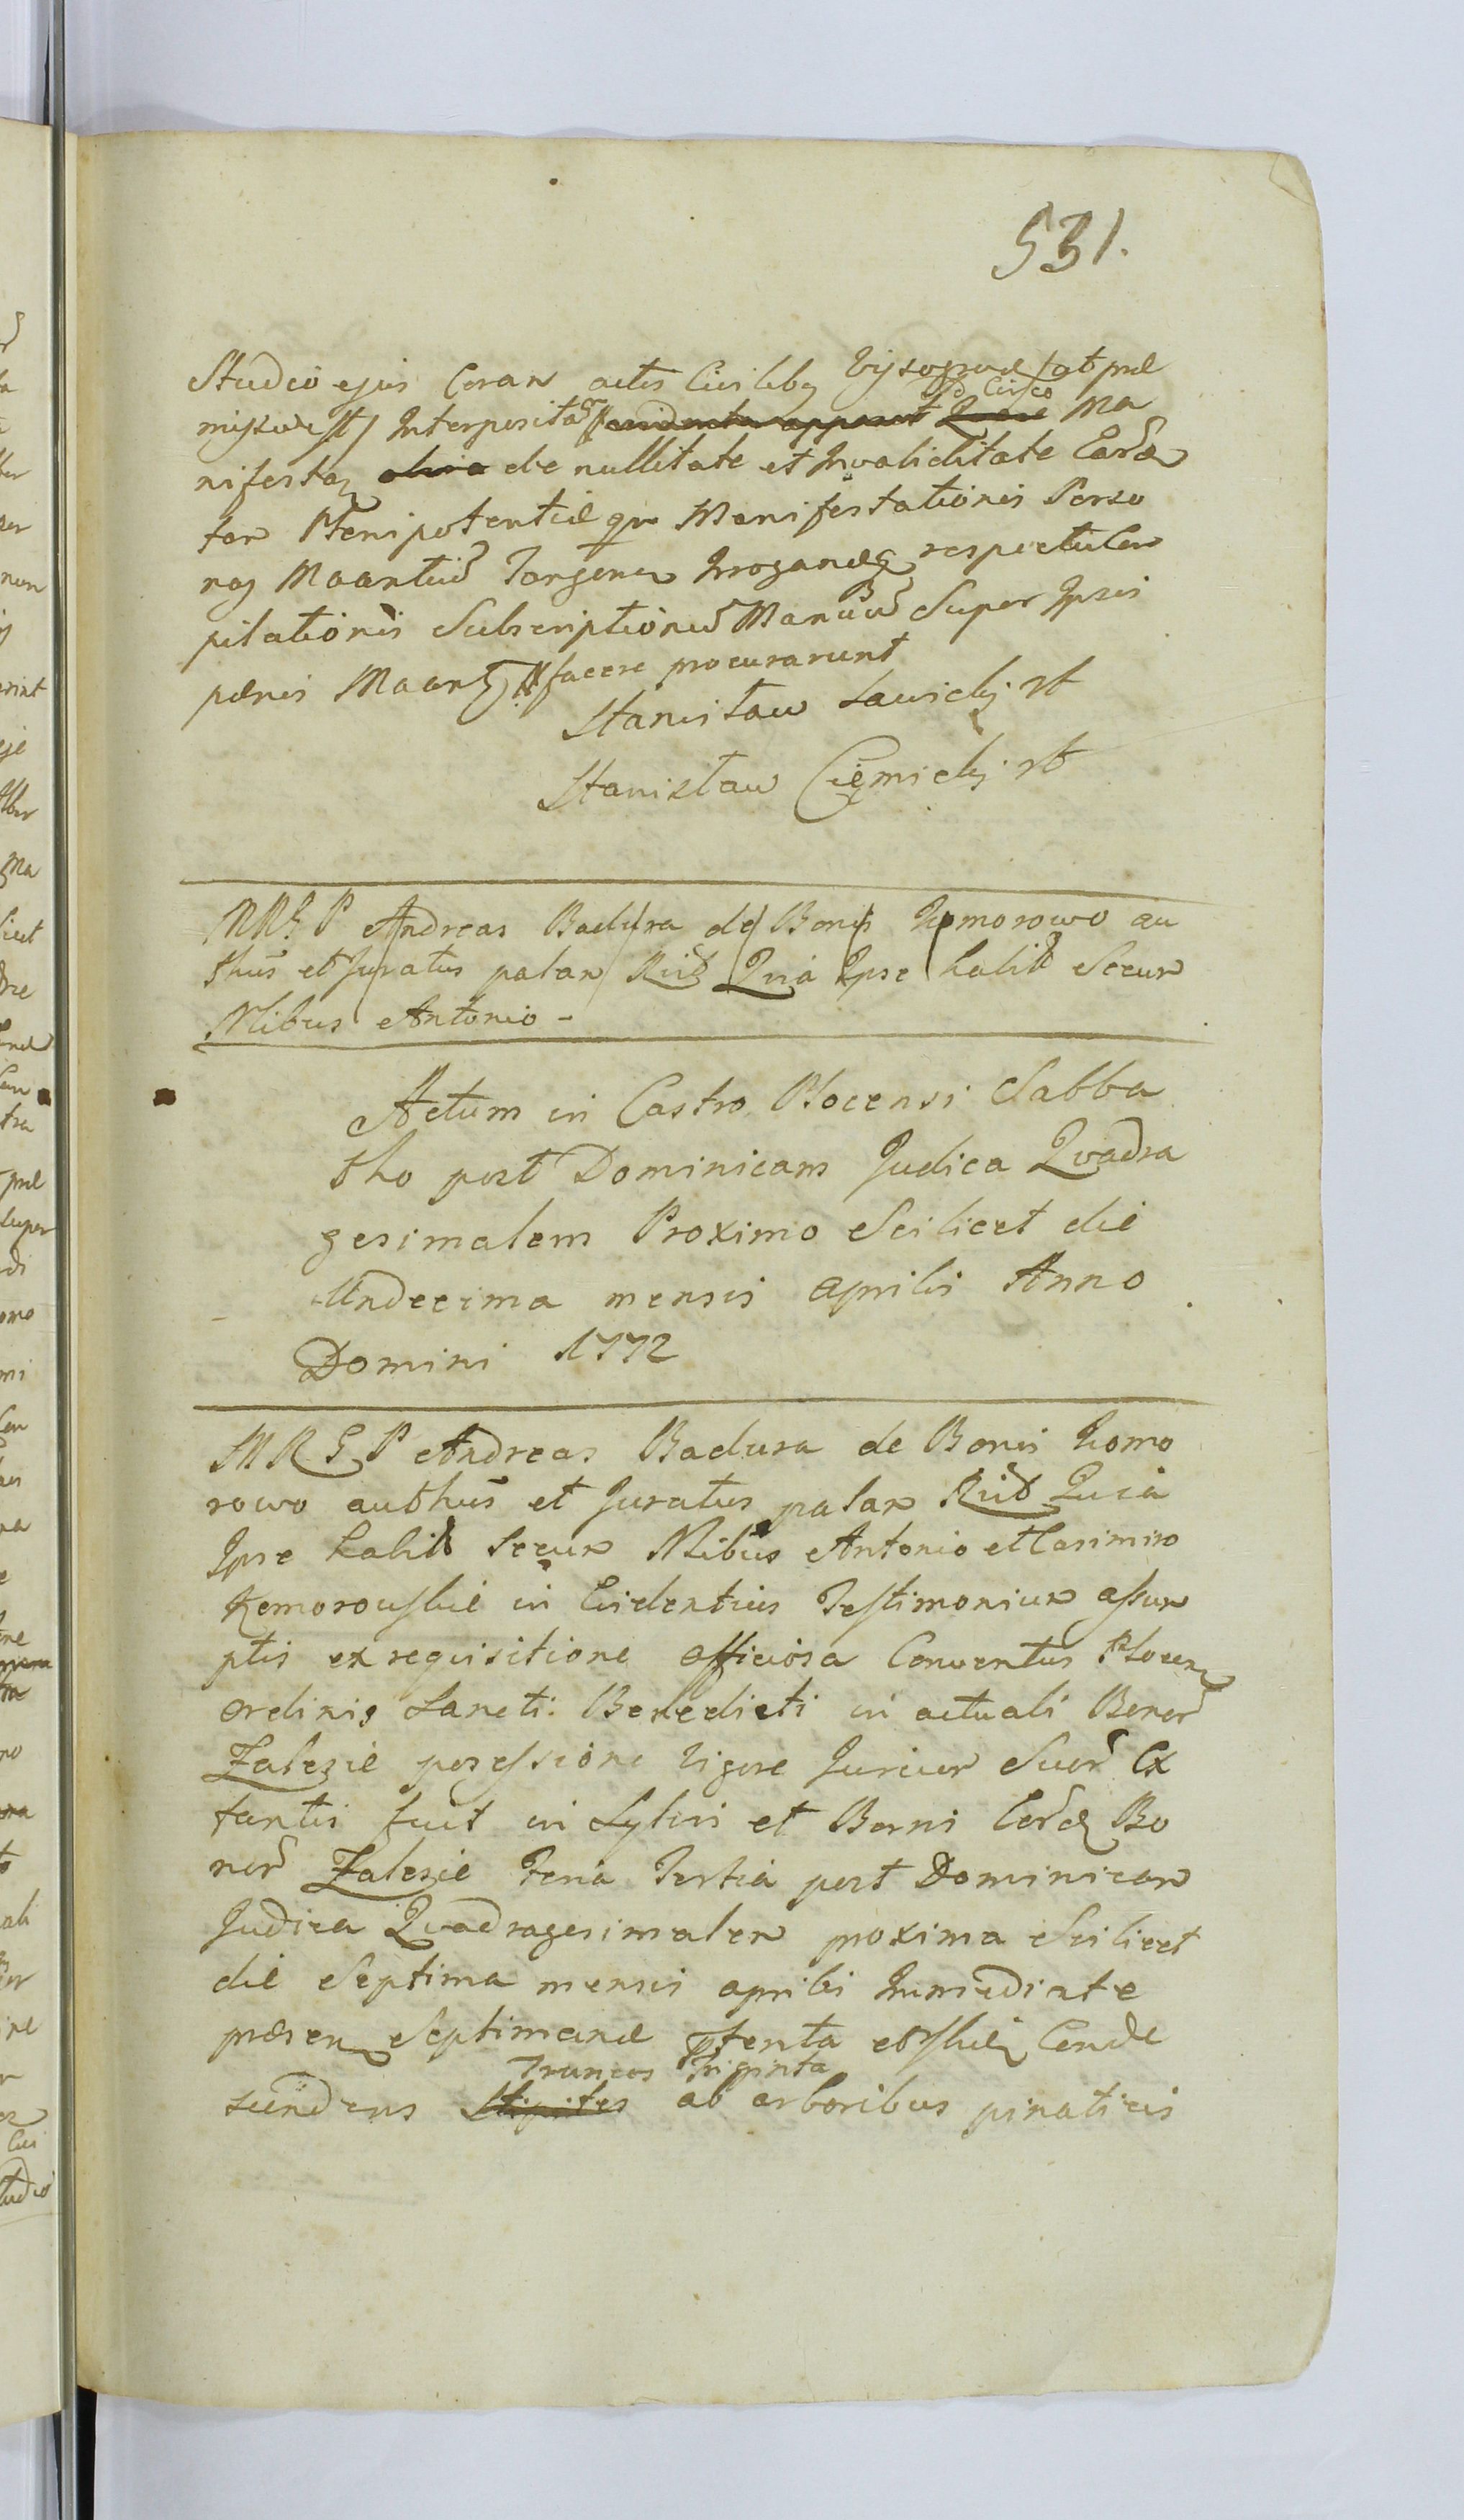 531.
Studio ejus Coran actis Civilibq Vysogrod (at præ
d Civico
missu est) Interposita evidenter apparet Quare Ma
nifestaq alia de nullitate et Invaliditate Eard
ten Plenipotentiæ qm Manifestationis Perso
naq Maantiu Tangen Irrogandq respectu
pilationis Subscriptioniu Manuu Super Ipsis
pænis Maantq facere procurarunt
Stanisław Lawickj
Stanisław Ciemickj
MRGP Andreas Badura de Bonis Komorowo au
thus et Juratus palan Rud Quia Ipse habitt Secun
Nlibus Antonio -
Actum in Castro Plocensi Sabba
tho post Dominicam Judica Quadra
gesimalem Proximo Scilicet die
Undecima mensis Aprilis Anno
Domini 1772
MRGP Andreas Badura de Bonis Komo
rowo authus et Juratus palan Rud Quia
Ipse habitt Secun Nlibus Antonio et Casimiro
Komorowskie in Evidentius Testimoniun assun
ptis ex requisitione officiosa Conventus Plocen
Ordinis Sancti Benedicti in actuali Bonor
Zalesie possessione vigore Jurium Suor Ex
tantis fuit in Sylvis et Borni Eord Bo
nor Zalesie Feria Tertia post Dominican
Judica Quadragesimalen proxima Scilicet
die Septima mensis aprilis Immediate
præsen Septimanæ
Truncos Triginta
Stipites ab arboribus pinaticis